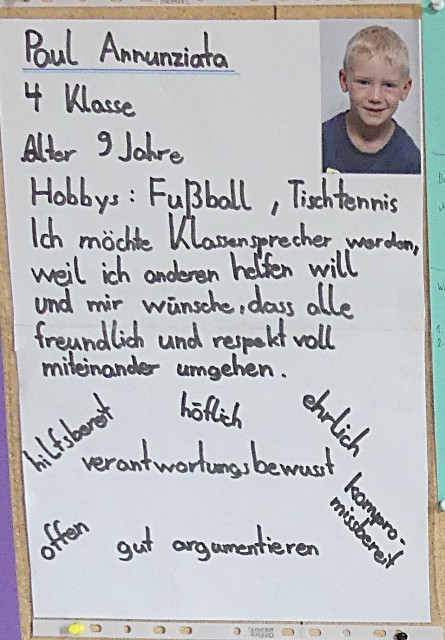 Paul Annunziata
4 Klasse
Alter 9 Jahre
Hobbys: Fußball, Tischtennis
Ich möchte Klassensprecher werden,
weil ich anderen helfen will
und mir wünsche, dass alle
freundlich und respekt voll
miteinander umgehen.
hilfsbereit
höflich
ehrlich
verantwortungsbewusst
kompro-
missbereit
offen
gut argumentieren